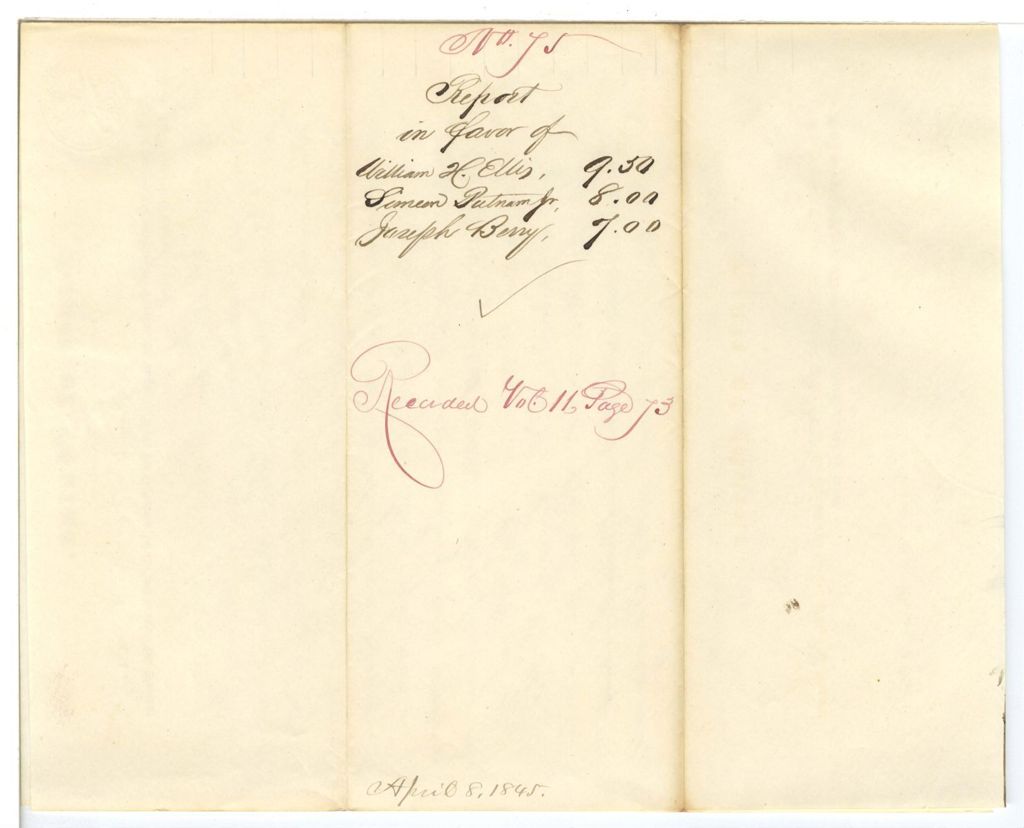 No. 75
Report
in favor of
William H. Ellis, 9.50
Simeon Putnam Jr, 8.00
Joseph Berry, 7.00
Recorded Vol. 11 Page 73
April 8, 1845.